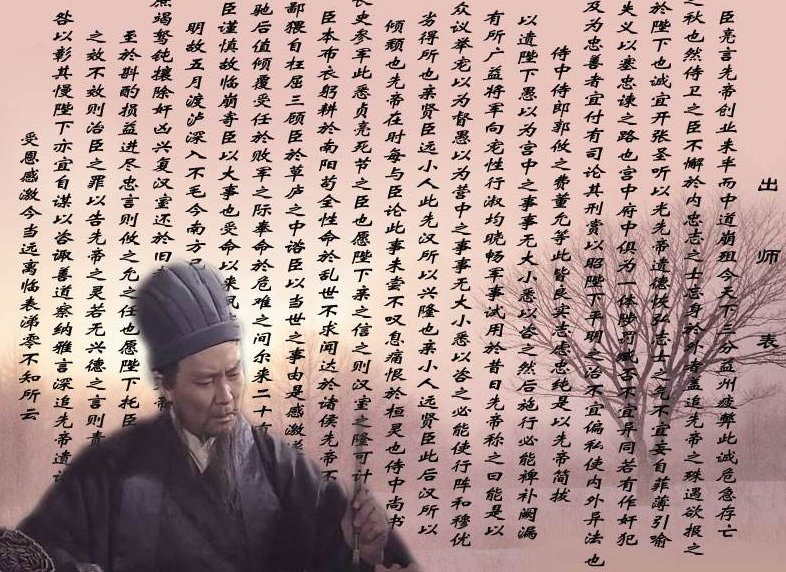 出师表
臣亮言先帝创业未半而中道崩殂今天下三分益州疲弊此诚危急存亡
之秋也然侍卫之臣不懈於内忠志之士忘身於外者盖追先帝之殊遇欲报之
於陛下也诚宜开张圣听以光先帝遗德恢弘志士之气不宜妄自菲薄引喻
失义以塞忠谏之路也宫中府中俱为一体陟罚臧否不宜异同若有作奸犯
及为忠善者宜付有司论其刑赏以昭陛下平明之治不宜偏私使内外异法也
侍中侍郎郭攸之费董允等此皆良实志虑忠纯是以先帝简拔
以遗陛下愚以为宫中之事事无大小悉以咨之然后施行必能裨补阙漏
有所广益将军向宠性行淑均晓畅军事试用於昔日先帝称之曰能是以
众议举宠以为督愚以为营中之事事无大小悉以咨之必能使行阵和穆优
劣得所也亲贤臣远小人此先汉所以兴隆也亲小人远贤臣此后汉所以
倾颓也先帝在时每与臣论此事未尝不叹息痛恨於桓灵也侍中尚书
长史参军此悉贞亮死节之臣也愿陛下亲之信之则汉室之隆可计
臣本布衣躬耕於南阳苟全性命於乱世不求闻达於诸侯先帝不
鄙猥自枉屈三顾臣於草庐之中谘臣以当世之事由是感激
驰后值倾覆受任於败军之际奉命於危难之间尔来二十有
臣谨慎故临崩寄臣以大事也受命以来夙
明故五月渡泸深入不毛今南方已
庶竭驽钝攘除奸凶兴复汉室还於旧
至於斟酌损益进尽忠言则攸之允之任也愿陛下托臣
之效不效则治臣之罪以告先帝之灵若无兴德之言则责
咎以彰其慢陛下亦宜自谋以咨诹善道察纳雅言深追先帝遗诏
受恩感激今当远离临表涕零不知所云